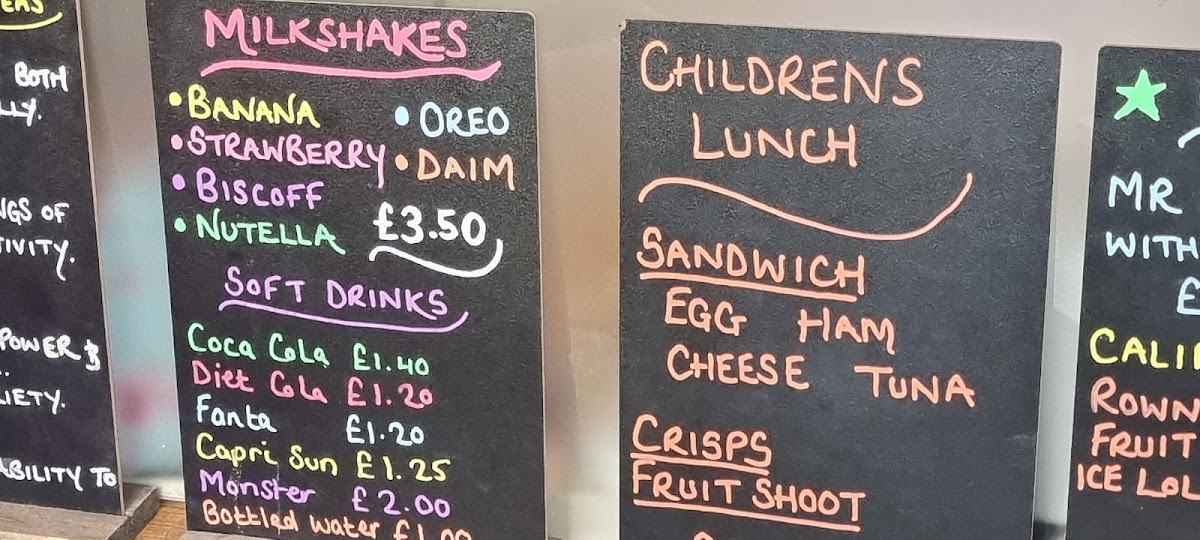 BOTH
OF
POWER &
ABILITY TO
MILKSHAKES
• BANANA
• STRAWBERRY
• BISCOFF
• NUTELLA
• OREO
• DAIM
£3.50
SOFT DRINKS
Coca Cola £1.40
Diet Cola £1.20
Fanta £1.20
Capri Sun £1.25
Monster £2.00
Bottled water £1.00
CHILDRENS
LUNCH
SANDWICH
EGG HAM
CHEESE TUNA
CRISPS
FRUIT SHOOT
MR
WITH
£
FRUIT
ICE